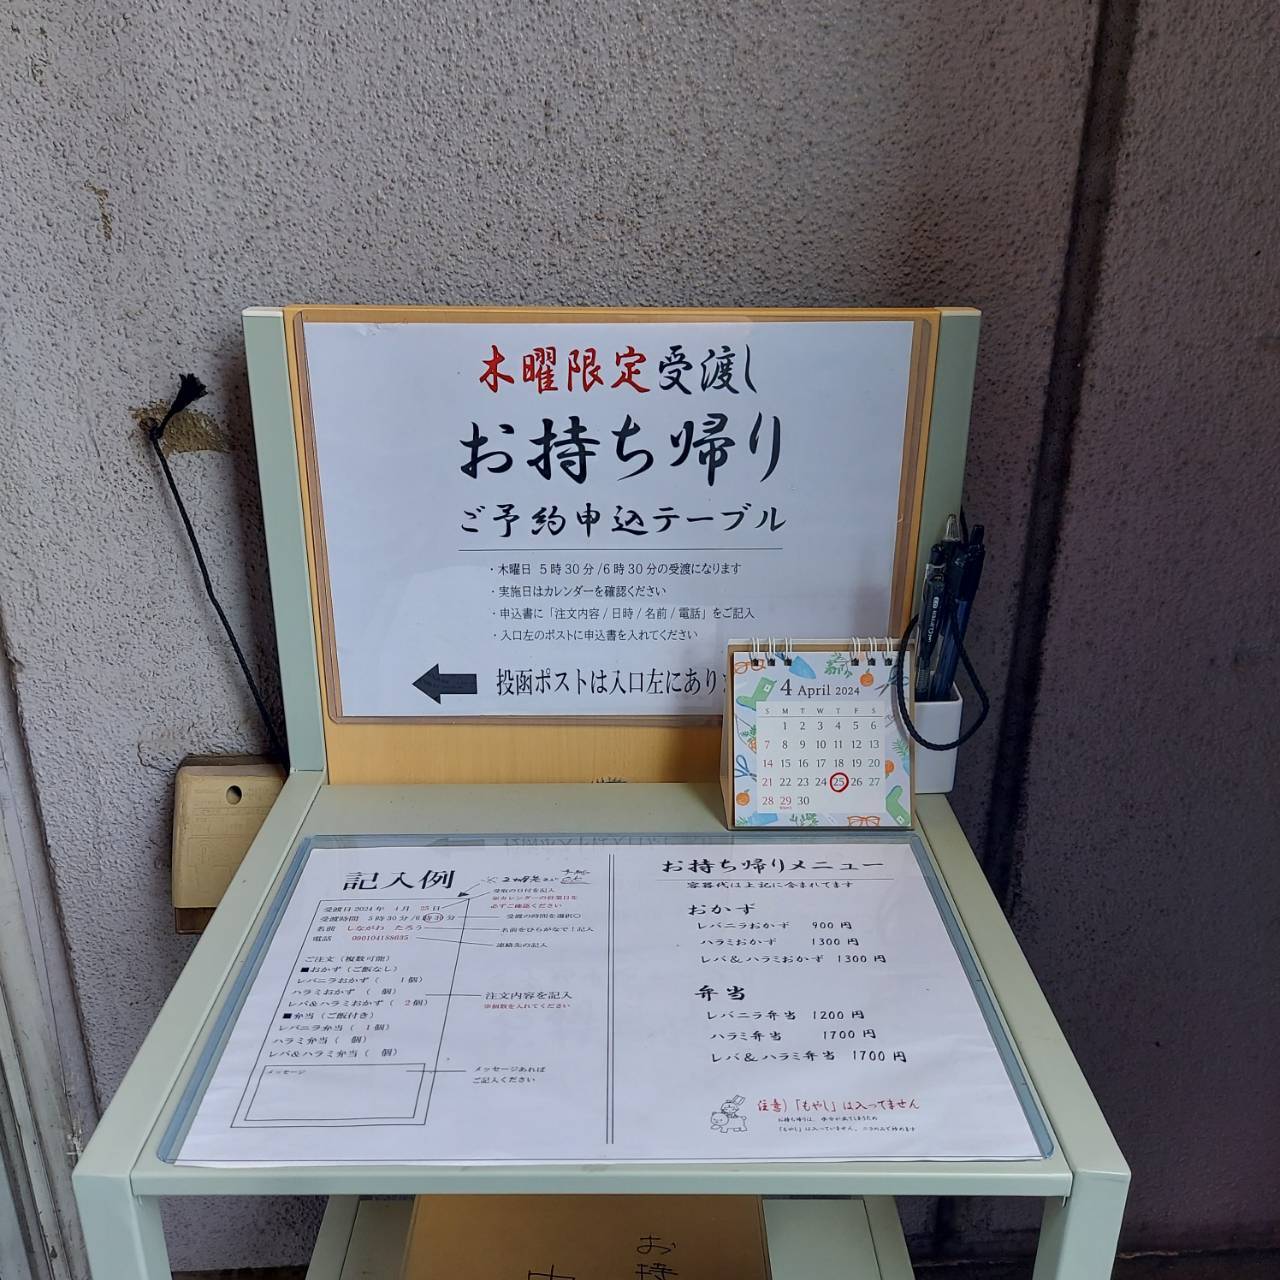 木曜限定受渡し
お持ち帰り
ご予約申込テーブル
・木曜日 5時30分/6時30分の受渡になります
・実施日はカレンダーを確認ください
・申込書に「注文内容/日時/名前/電話」をご記入
・入口左のポストに申込書を入れてください
投函ポストは入口左にあり
4 April 2024
S M T W T F S
1 2 3 4 5 6
7 8 9 10 11 12 13
14 15 16 17 18 19 20
21 22 23 24 25 26 27
28 29 30
記入例
受取の日付を記入
※カレンダーの営業日を
必ずご確認ください
受渡日2024年 4月 25日
受渡時間 5時30分/6時30分
受渡の時間を選択〇
名前 しながわ たろう
名前をひらがなで記入
電話 090104188635
連絡先の記入
ご注文(複数可能)
■おかず(ご飯なし)
レバニラおかず( 1個)
ハラミおかず ( 個)
レバ&ハラミおかず( 2個)
注文内容を記入
※個数を入れてください
■弁当(ご飯付き)
レバニラ弁当( 1個)
ハラミ弁当( 個)
レバ&ハラミ弁当( 個)
メッセージ
メッセージあれば
ご記入ください
お持ち帰りメニュー
容器代は上記に含まれてます
おかず
レバニラおかず 900円
ハラミおかず 1300円
レバ&ハラミおかず 1300円
弁当
レバニラ弁当 1200円
ハラミ弁当 1700円
レバ&ハラミ弁当 1700円
注意)「もやし」は入ってません
お持ち帰りは、水分が出てしまうため
「もやし」は入っていません。ニラのみで炒めます
お持